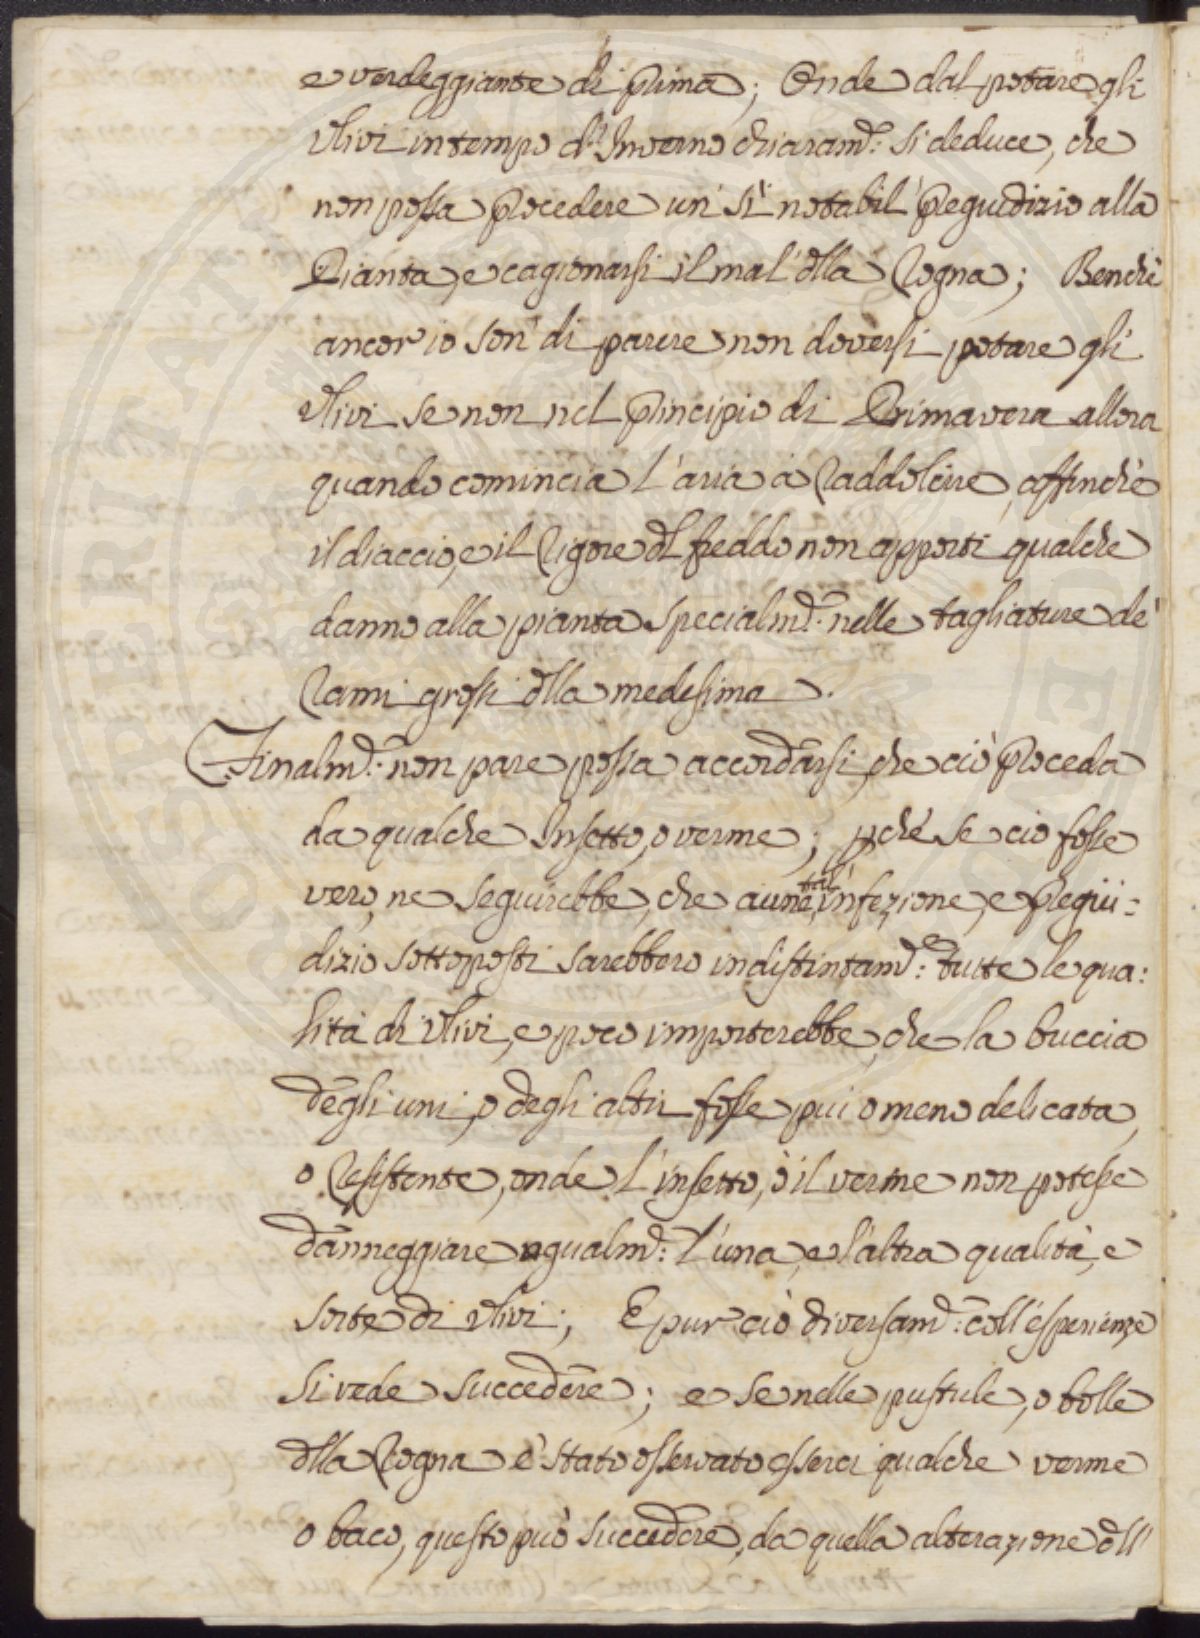 e verdeggiante di prima; Onde dal potare gli
Ulivi in tempo d'Inverno chiaram:te si deduce, che
non possa procedere un' sì notabil' pregiudizio alla
Pianta, e cagionarsi il mal' dlla Rogna; Benchè
ancor' io son' di parere non doversi potare gli
Ulivi se non nel principio di Primavera allora
quando comincia l'aria à raddolcire, affinchè
il diaccio, e il rigore dl freddo non apporti qualche
danno alla pianta specialm:te nelle tagliature de'
rami grossi dlla medesima.
Finalm:te non pare possa accordarsi, che ciò proceda
da qualche Insetto, o verme; pchè se ciò fosse
vero, ne seguirebbe, che a una tal' infezione, e pregiu:
dizio sottoposti sarebbero indistintam:te tutte le qua:
lità di Ulivi, e poco importerebbe, che la buccia
degli uni, o degli altri fosse più o meno delicata,
o resistente, onde l'insetto, ò il verme non potesse
danneggiare ugualm:te l'una, e l'altra qualità, e
sorte di Ulivi; E pur ciò diversam:te coll'esperienze
si vede succedere; e se nelle pustule, o bolle
dlla Rogna è stato osservato esserci qualche verme
o baco, questo può succedere, da quella alterazione dll'